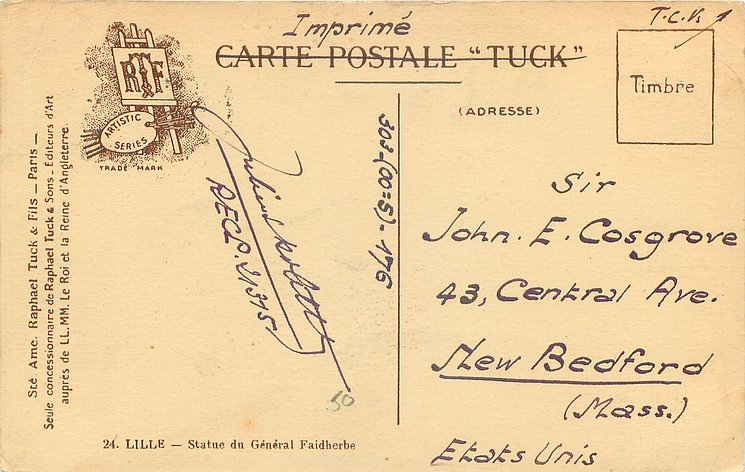 Imprimé
T.C.V.
CARTE POSTALE “TUCK”
RTF
ARTISTIC
SERIES
TRADE MARK
Timbre
(ADRESSE)
Sté Ame. Raphael Tuck & Fils — Paris —
Seule concessionnaire de Raphael Tuck & Sons - Éditeurs d'Art
auprès de LL.MM. Le Roi et la Reine d'Angleterre.
Sir
John. E. Cosgrove
43, Central Ave.
New Bedford
(Mass.)
Etats Unis
50
24. LILLE — Statue du Général Faidherbe